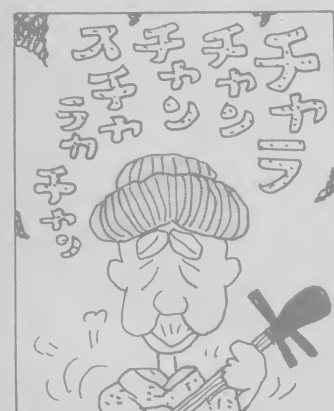 チャラ
チャン
チャン
スチャ
ラカ
チャン